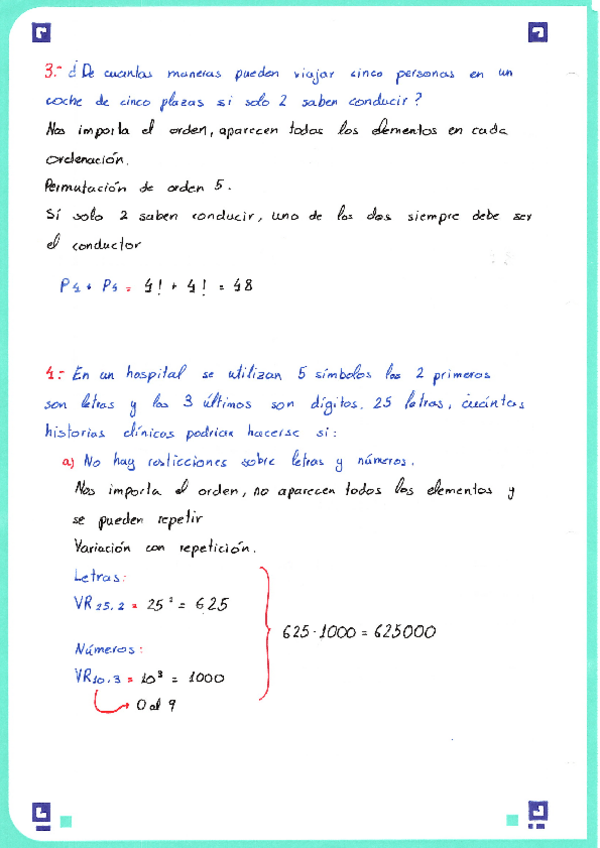 3.- ¿De cuantas maneras pueden viajar cinco personas en un
coche de cinco plazas si solo 2 saben conducir?
Nos importa el orden, aparecen todos los elementos en cada
ordenación.
Permutación de orden 5.
Si solo 2 saben conducir, uno de los dos siempre debe ser
el conductor
P4 + P4 = 4! + 4! = 48
4.- En un hospital se utilizan 5 símbolos los 2 primeros
son letras y los 3 últimos son dígitos. 25 letras, cuántas
historias clínicas podrían hacerse si:
a) No hay resticciones sobre letras y números.
Nos importa el orden, no aparecen todos los elementos y
se pueden repetir
Variación con repetición.
Letras:
VR25,2 = 25² = 625
625 · 1000 = 625000
Números:
VR10,3 = 10³ = 1000
0 al 9